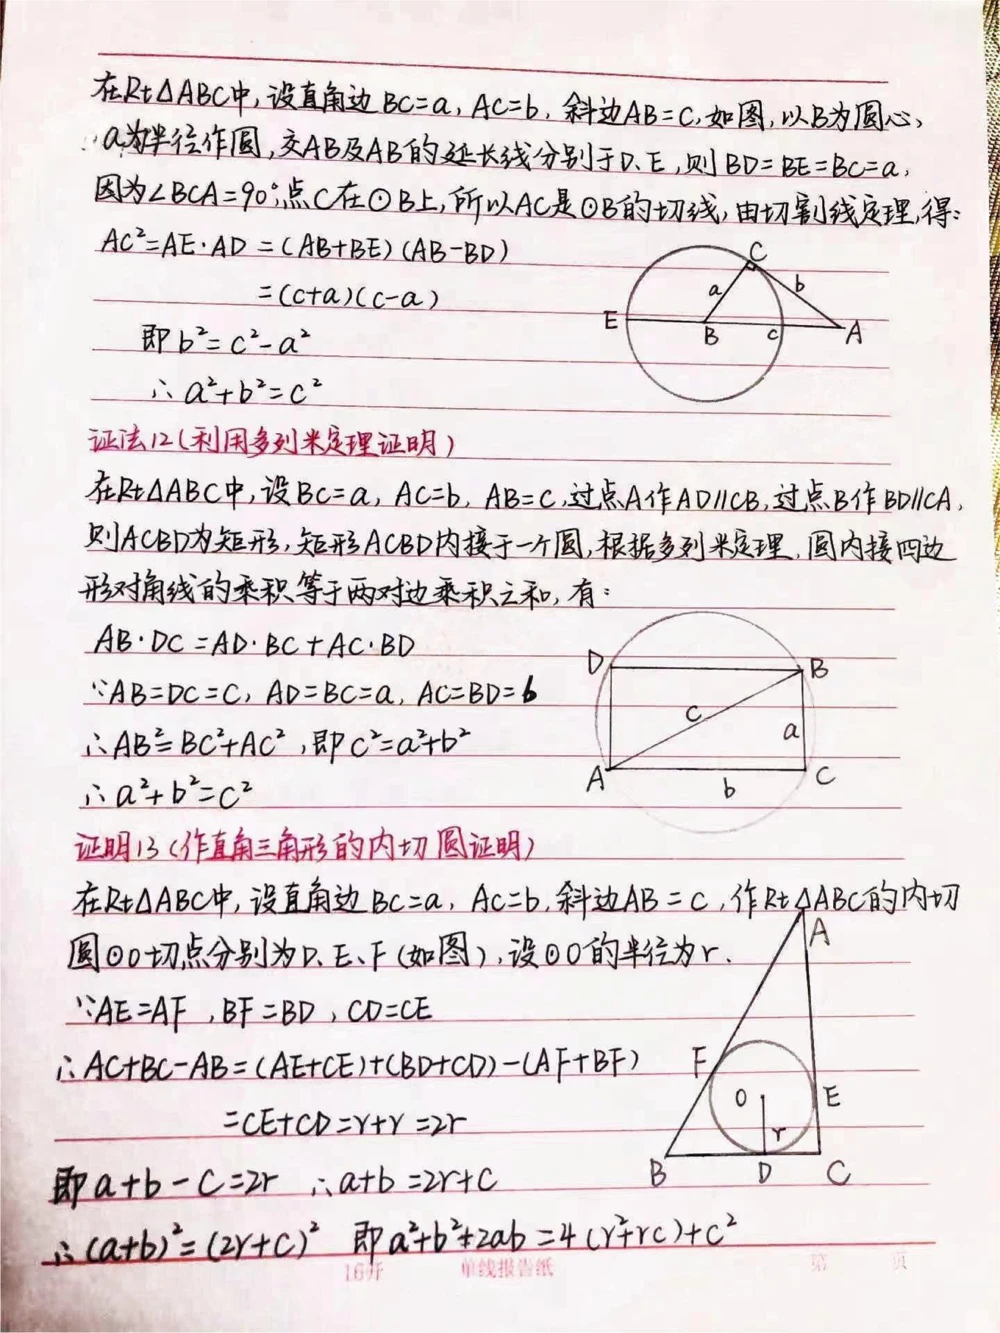 在Rt△ABC中,设直角边BC=a, AC=b, 斜边AB=c,如图,以B为圆心,
a为半径作圆,交AB及AB的延长线分别于D、E,则BD=BE=BC=a,
因为∠BCA=90°,点C在⊙B上,所以AC是⊙B的切线,由切割线定理,得:
AC²=AE·AD=(AB+BE)(AB-BD)
=(c+a)(c-a)
即b²=c²-a²
∴a²+b²=c²
C
a
b
E
B
c
A
证法12(利用多列米定理证明)
在Rt△ABC中,设BC=a, AC=b, AB=c,过点A作AD∥CB,过点B作BD∥CA,
则ACBD为矩形,矩形ACBD内接于一个圆,根据多列米定理,圆内接四边
形对角线的乘积等于两对边乘积之和,有:
AB·DC=AD·BC+AC·BD
∵AB=DC=c, AD=BC=a, AC=BD=b
∴AB²=BC²+AC²,即c²=a²+b²
∴a²+b²=c²
D
B
c
a
A
b
C
证明13(作直角三角形的内切圆证明)
在Rt△ABC中,设直角边BC=a, AC=b,斜边AB=c,作Rt△ABC的内切
圆⊙O切点分别为D、E、F(如图),设⊙O的半径为r.
∵AE=AF,BF=BD,CD=CE
∴AC+BC-AB=(AE+CE)+(BD+CD)-(AF+BF)
=CE+CD=r+r=2r
即a+b-c=2r ∴a+b=2r+c
∴(a+b)²=(2r+c)² 即a²+b²+2ab=4(r²+rc)+c²
A
F
O
E
r
B
D
C
16开 单线报告纸 第 页